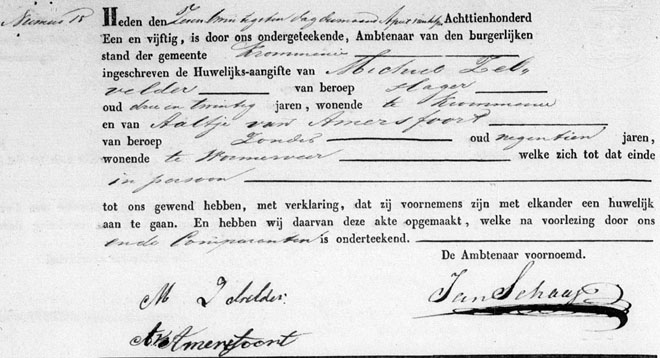 Numero 15
Heden den Zeven twintigsten dag der maand April van het jaar Achttienhonderd
Een en vijftig, is door ons ondergeteekende, Ambtenaar van den burgerlijken
stand der gemeente Krommenie
ingeschreven de Huwelijks-aangifte van Michiel Zel-
velder van beroep Slager
oud drie en twintig jaren, wonende te Krommenie
en van Aaltje van Amersfoort
van beroep Zonder oud negentien jaren,
wonende te Wormerveer welke zich tot dat einde
in persoon
tot ons gewend hebben, met verklaring, dat zij voornemens zijn met elkander een huwelijk
aan te gaan. En hebben wij daarvan deze akte opgemaakt, welke na voorlezing door ons
en de Comparanten is onderteekend.
De Ambtenaar voornoemd.
Jan Schaap
M Zelvelder
A v Amersfoort